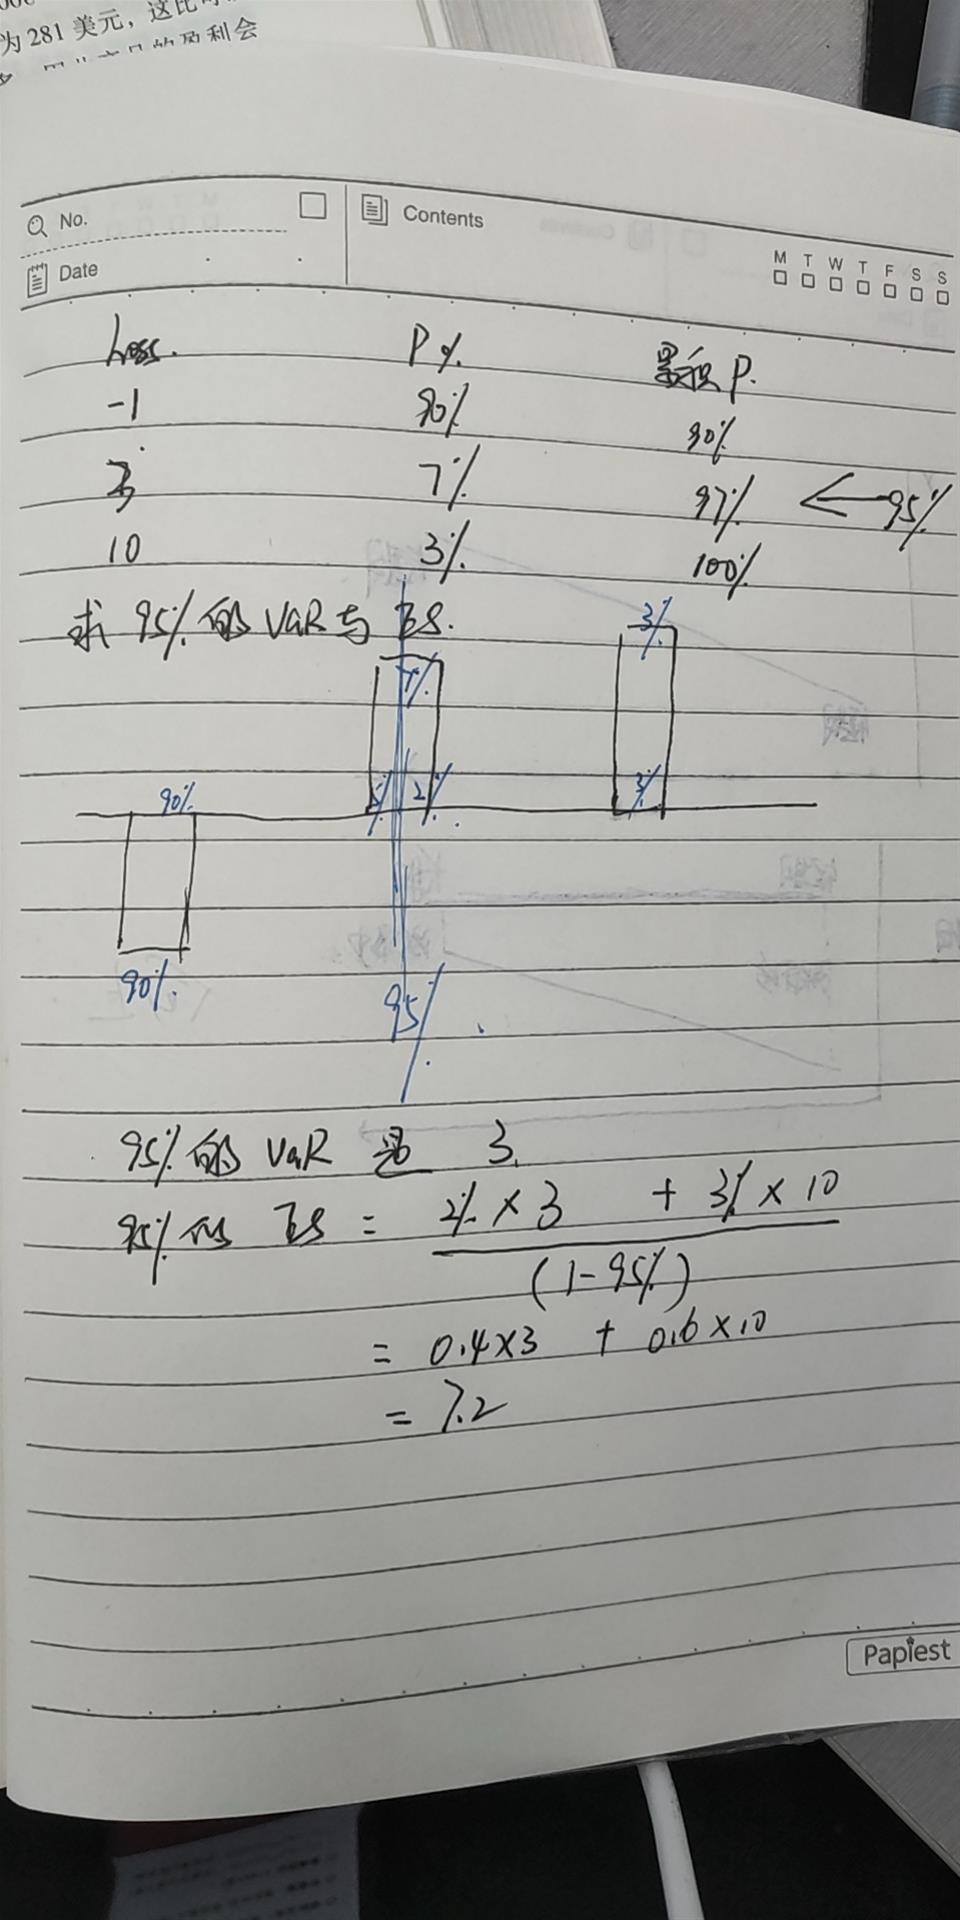 为 281 美元，这比
No.
Contents
Date
M T W T F S S
Loss. P% 累积 P.
-1 90% 90%
3 7% 97% ← 95%
10 3% 100%
求 95% 的 VaR 与 ES.
7% 3%
90% 5% 2% 3%
90%
95%
95% 的 VaR 是 3.
95% 的 ES = 2% × 3 + 3% × 10
(1-95%)
= 0.4×3 + 0.6×10
= 7.2
Papiest